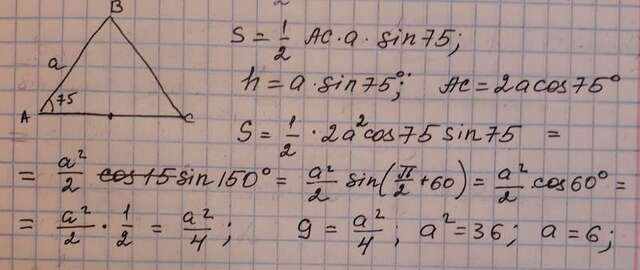 B
a
A 75 C
S = 1/2 AC · a · sin75;
h = a · sin75°; AC = 2a cos75°
S = 1/2 · 2a² cos75 sin75 =
= a²/2 sin150° = a²/2 sin(π/2 + 60) = a²/2 cos60° =
= a²/2 · 1/2 = a²/4; 9 = a²/4; a² = 36; a = 6;